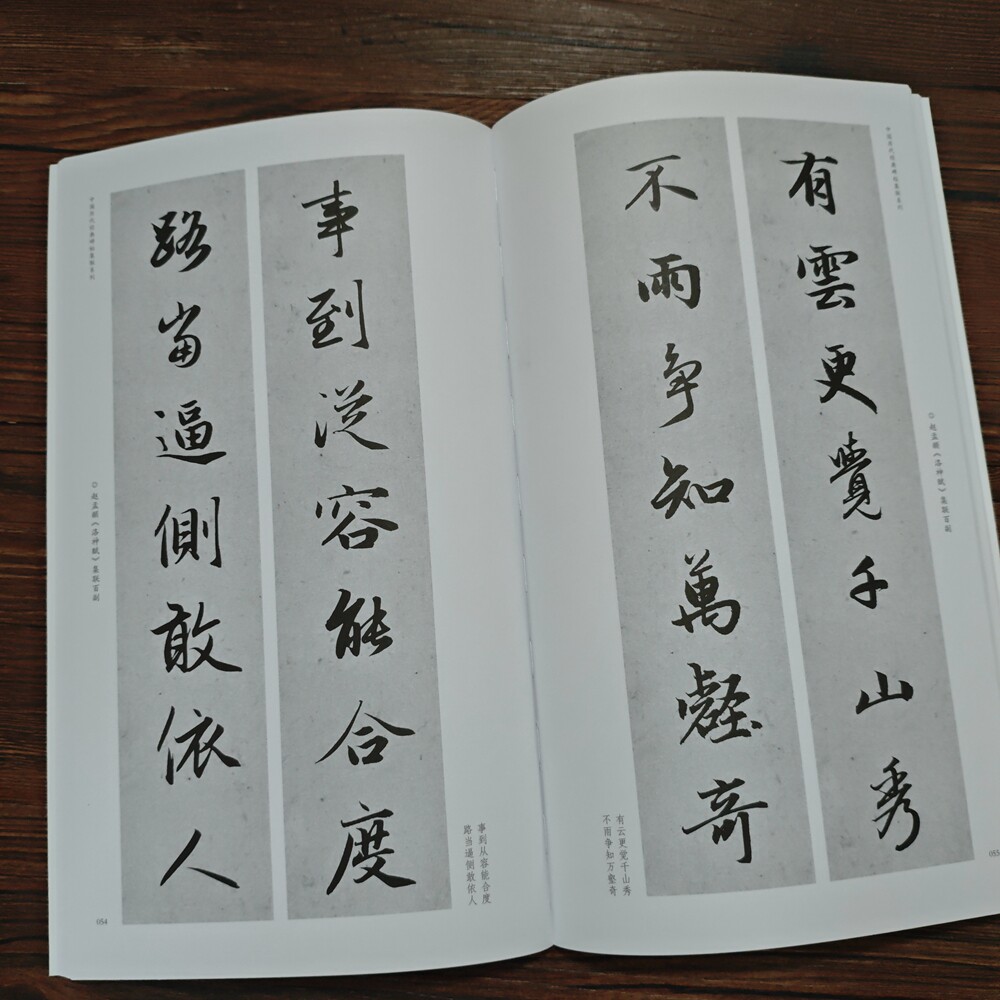 中国历代经典碑帖集联系列
◎ 赵孟頫《洛神赋》集联百副
有雲更覺千山秀
不雨争知萬壑奇
有云更觉千山秀
不雨争知万壑奇
053
事到從容能合度
路當逼側敢依人
事到从容能合度
路当逼侧敢依人
中国历代经典碑帖集联系列
◎ 赵孟頫《洛神赋》集联百副
054